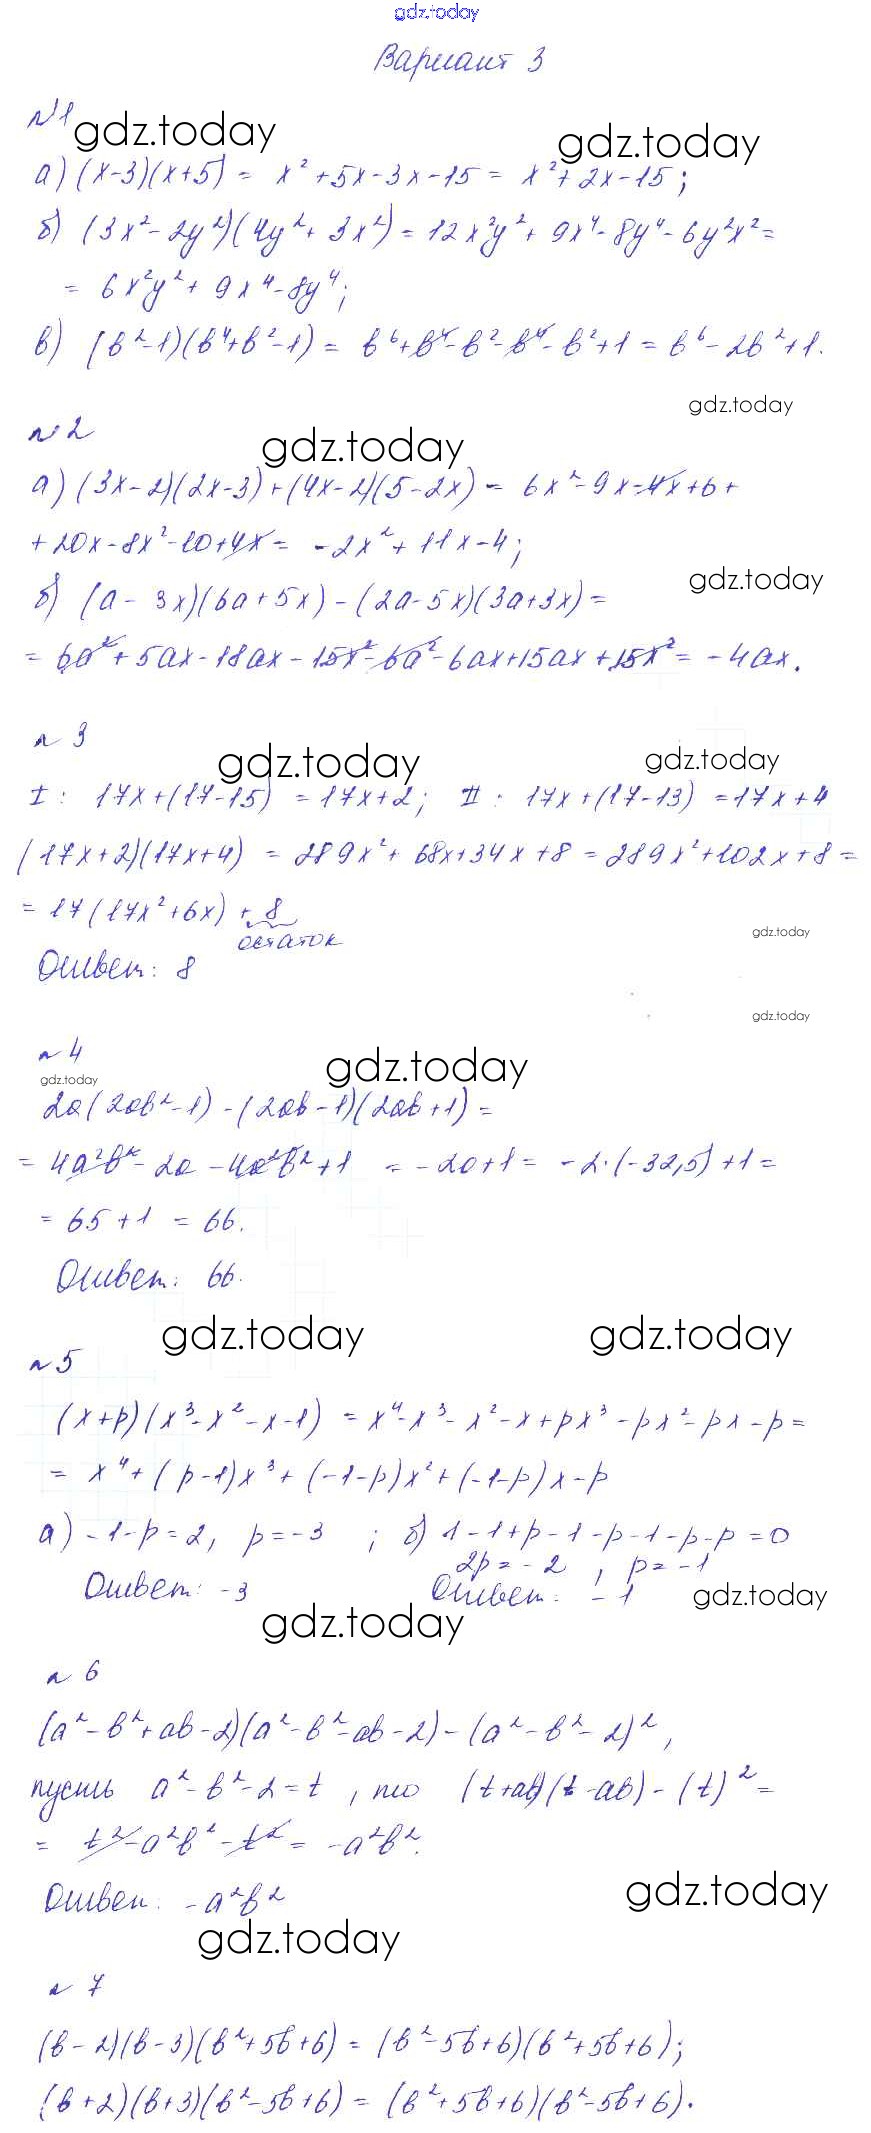 gdz.today
Вариант 3
№1
gdz.today gdz.today
а) (x-3)(x+5) = x² + 5x - 3x - 15 = x² + 2x - 15;
б) (3x² - 2y²)(4y² + 3x²) = 12x²y² + 9x⁴ - 8y⁴ - 6y²x² =
= 6x²y² + 9x⁴ - 8y⁴;
в) (b²-1)(b⁴+b²-1) = b⁶ + b⁴ - b² - b⁴ - b² + 1 = b⁶ - 2b² + 1.
gdz.today
№2
gdz.today
а) (3x-2)(2x-3) + (4x-2)(5-2x) = 6x² - 9x - 4x + 6 +
+ 20x - 8x² - 10 + 4x = -2x² + 11x - 4;
gdz.today
б) (a - 3x)(6a + 5x) - (2a - 5x)(3a + 3x) =
= 6a² + 5ax - 18ax - 15x² - 6a² - 6ax + 15ax + 15x² = -4ax.
№3
gdz.today gdz.today
I: 17x + (17-15) = 17x + 2; II: 17x + (17-13) = 17x + 4
(17x+2)(17x+4) = 289x² + 68x + 34x + 8 = 289x² + 102x + 8 =
= 17(17x² + 6x) + 8
остаток
gdz.today
Ответ: 8
gdz.today
№4
gdz.today
gdz.today
2a(2ab²-1) - (2ab-1)(2ab+1) =
= 4a²b² - 2a - 4a²b² + 1 = -2a + 1 = -2·(-32,5) + 1 =
= 65 + 1 = 66.
Ответ: 66.
gdz.today gdz.today
№5
(x+p)(x³ - x² - x - 1) = x⁴ - x³ - x² - x + px³ - px² - px - p =
= x⁴ + (p-1)x³ + (-1-p)x² + (-1-p)x - p
а) -1-p = 2, p = -3 ; б) 1-1+p-1-p-1-p-p = 0
2p = -2, p = -1
Ответ: -3 Ответ: -1
gdz.today
gdz.today
№6
(a² - b² + ab - 2)(a² - b² - ab - 2) - (a² - b² - 2)²,
пусть a² - b² - 2 = t, то (t+ab)(t-ab) - (t)² =
= t² - a²b² - t² = -a²b².
Ответ: -a²b²
gdz.today
gdz.today
№7
(b-2)(b-3)(b²+5b+6) = (b²-5b+6)(b²+5b+6);
(b+2)(b+3)(b²-5b+6) = (b²+5b+6)(b²-5b+6).